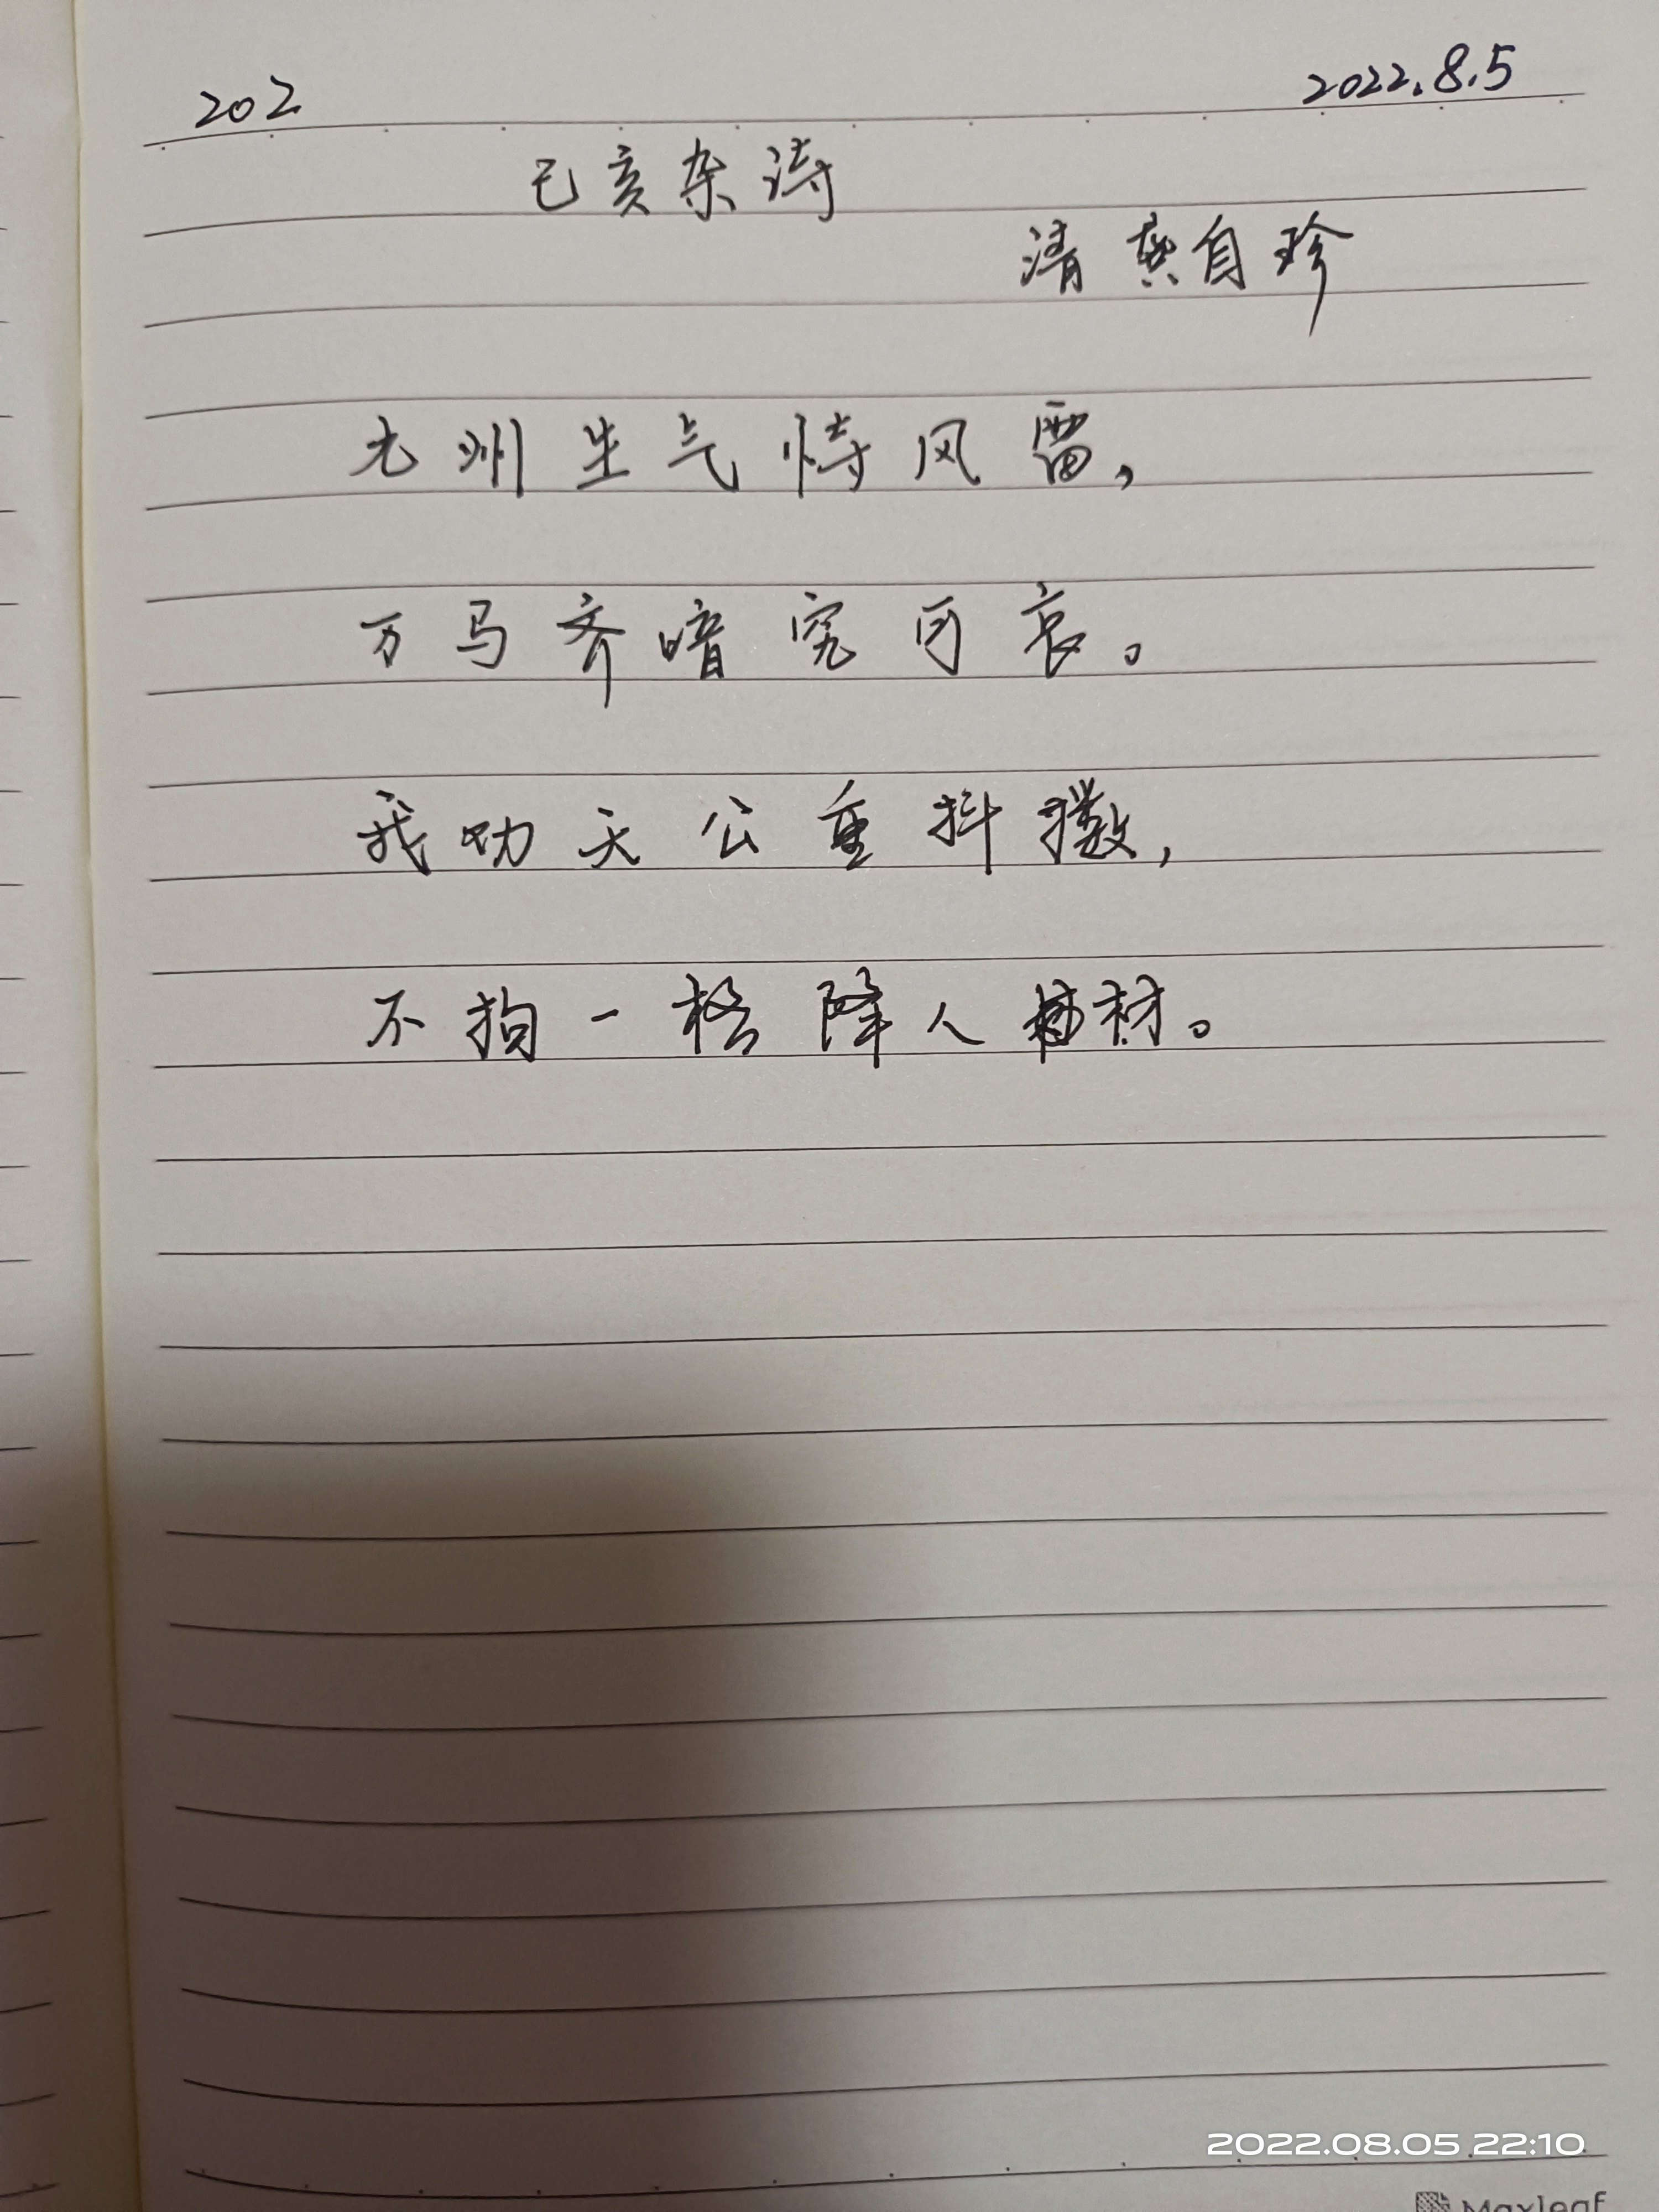 202
2022.8.5
己亥杂诗
清 龚自珍
九州生气恃风雷，
万马齐喑究可哀。
我劝天公重抖擞，
不拘一格降人材。
2022.08.05 22:10
Maxleaf